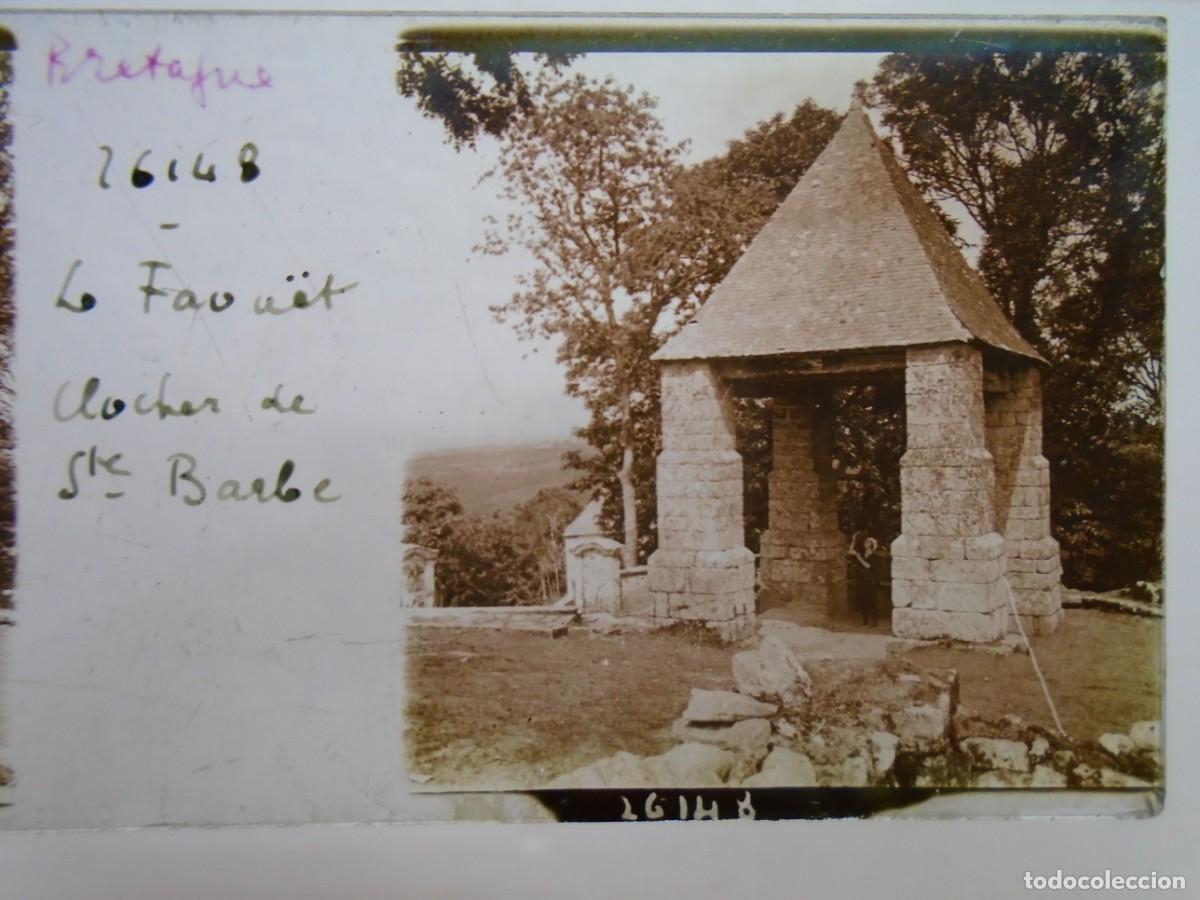 Bretagne
26148
-
Le Faouët
Clocher de
Ste Barbe
26148
todocoleccion